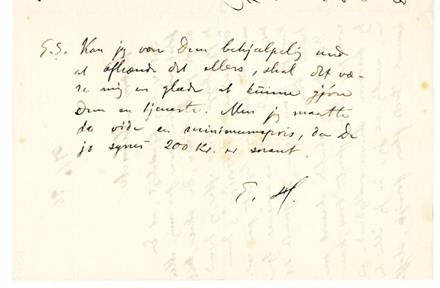 E.S. Kan jeg være Dem behjælpelig med
at afhænde det ellers, skal det væ-
re mig en glæde at kunne gjøre
Dem en tjeneste. Men jeg maatte
da vide en minimumspris, da De
jo synes 200 Kr. er smaat.
E. H.